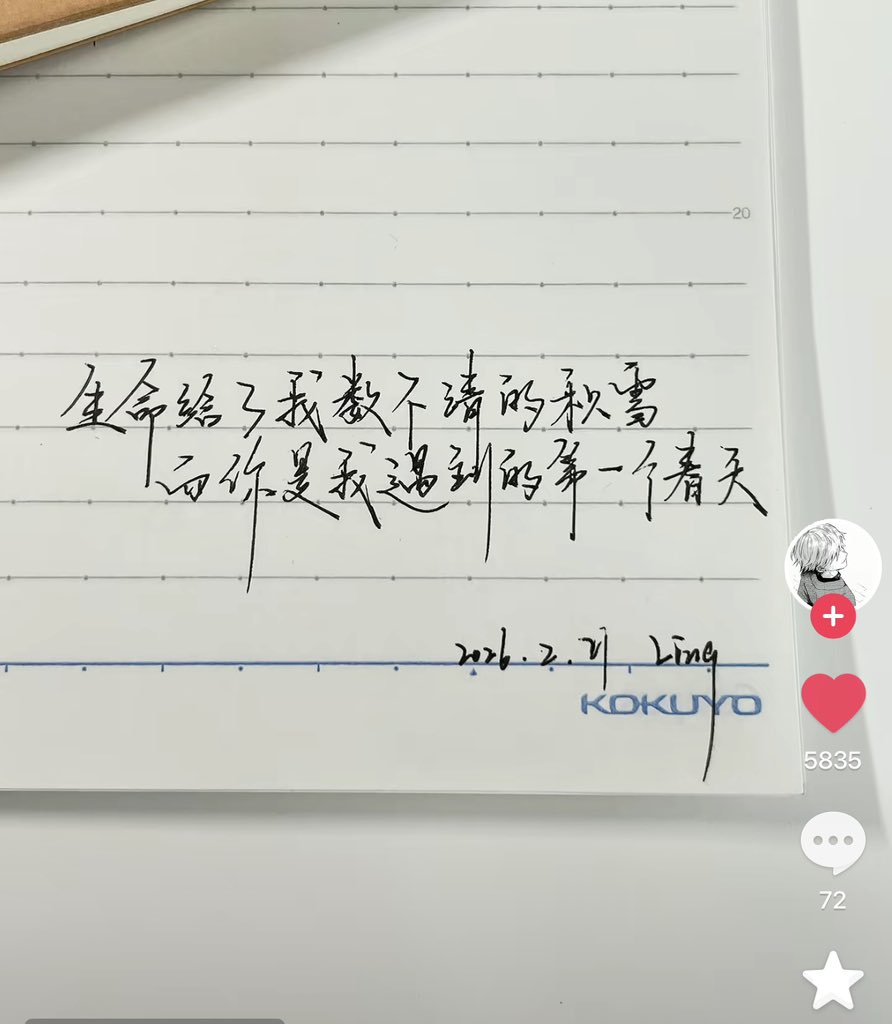 20
生命给了我数不清的秋雪
而你是我遇到的第一个春天
2026.2.21 Ling
KOKUYO
5835
72